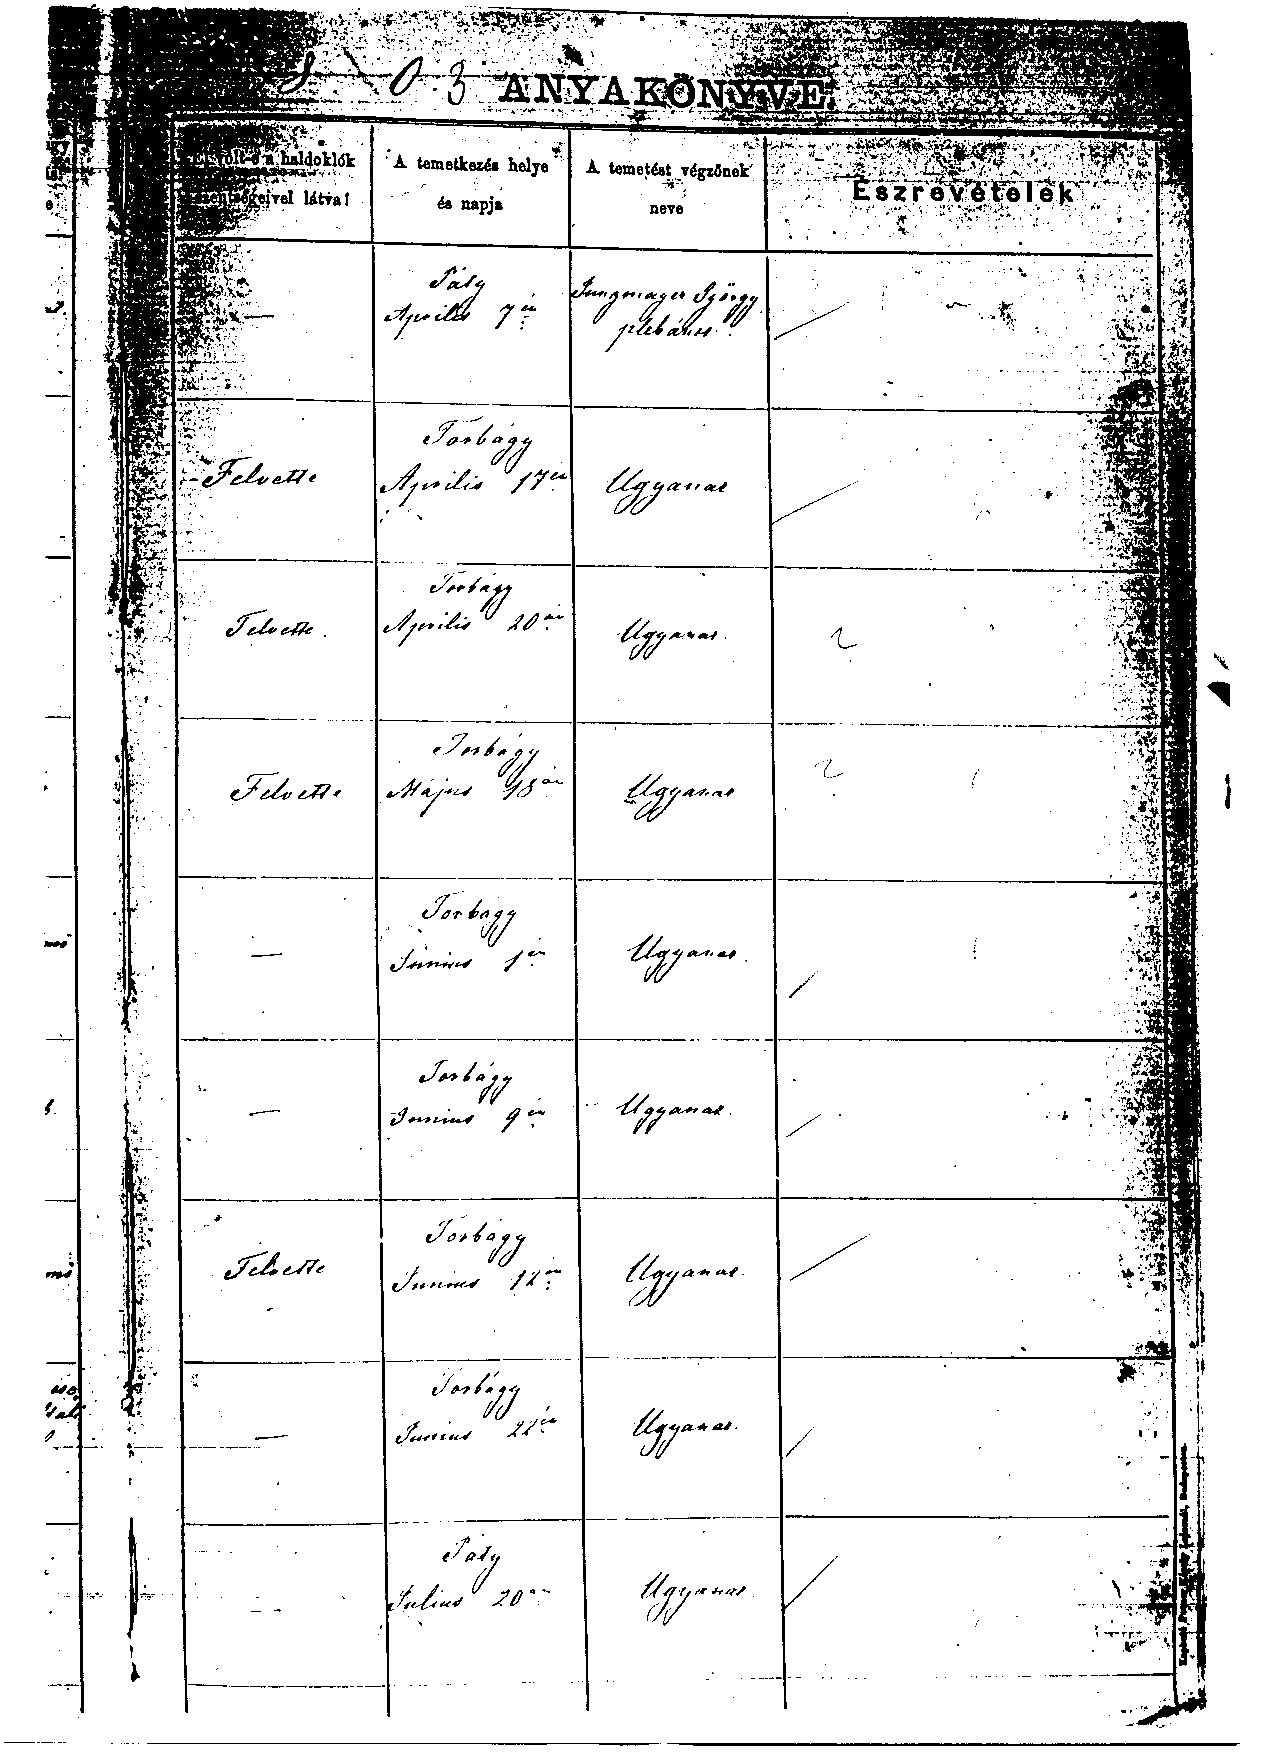 ANYAKÖNYVE.
a haldoklók
látva?
A temetkezés helye
és napja
A temetést végzőnek
neve
Észrevételek
Páty
Április 7én
Jungmayer György
plebános.
—
Torbágy
Felvette
Április 17én
Ugyanaz
Torbágy
Felvette.
Április 20án
Ugyanaz.
Torbágy
Felvette
Május 18án
Ugyanaz
Torbágy
—
Június 1én
Ugyanaz.
Torbágy
—
Junius 9én
Ugyanaz.
Torbágy
Felvette
Junius 12én
Ugyanaz.
Torbágy
—
Junius 22én
Ugyanaz.
Páty
—
Julius 20án
Ugyanaz.